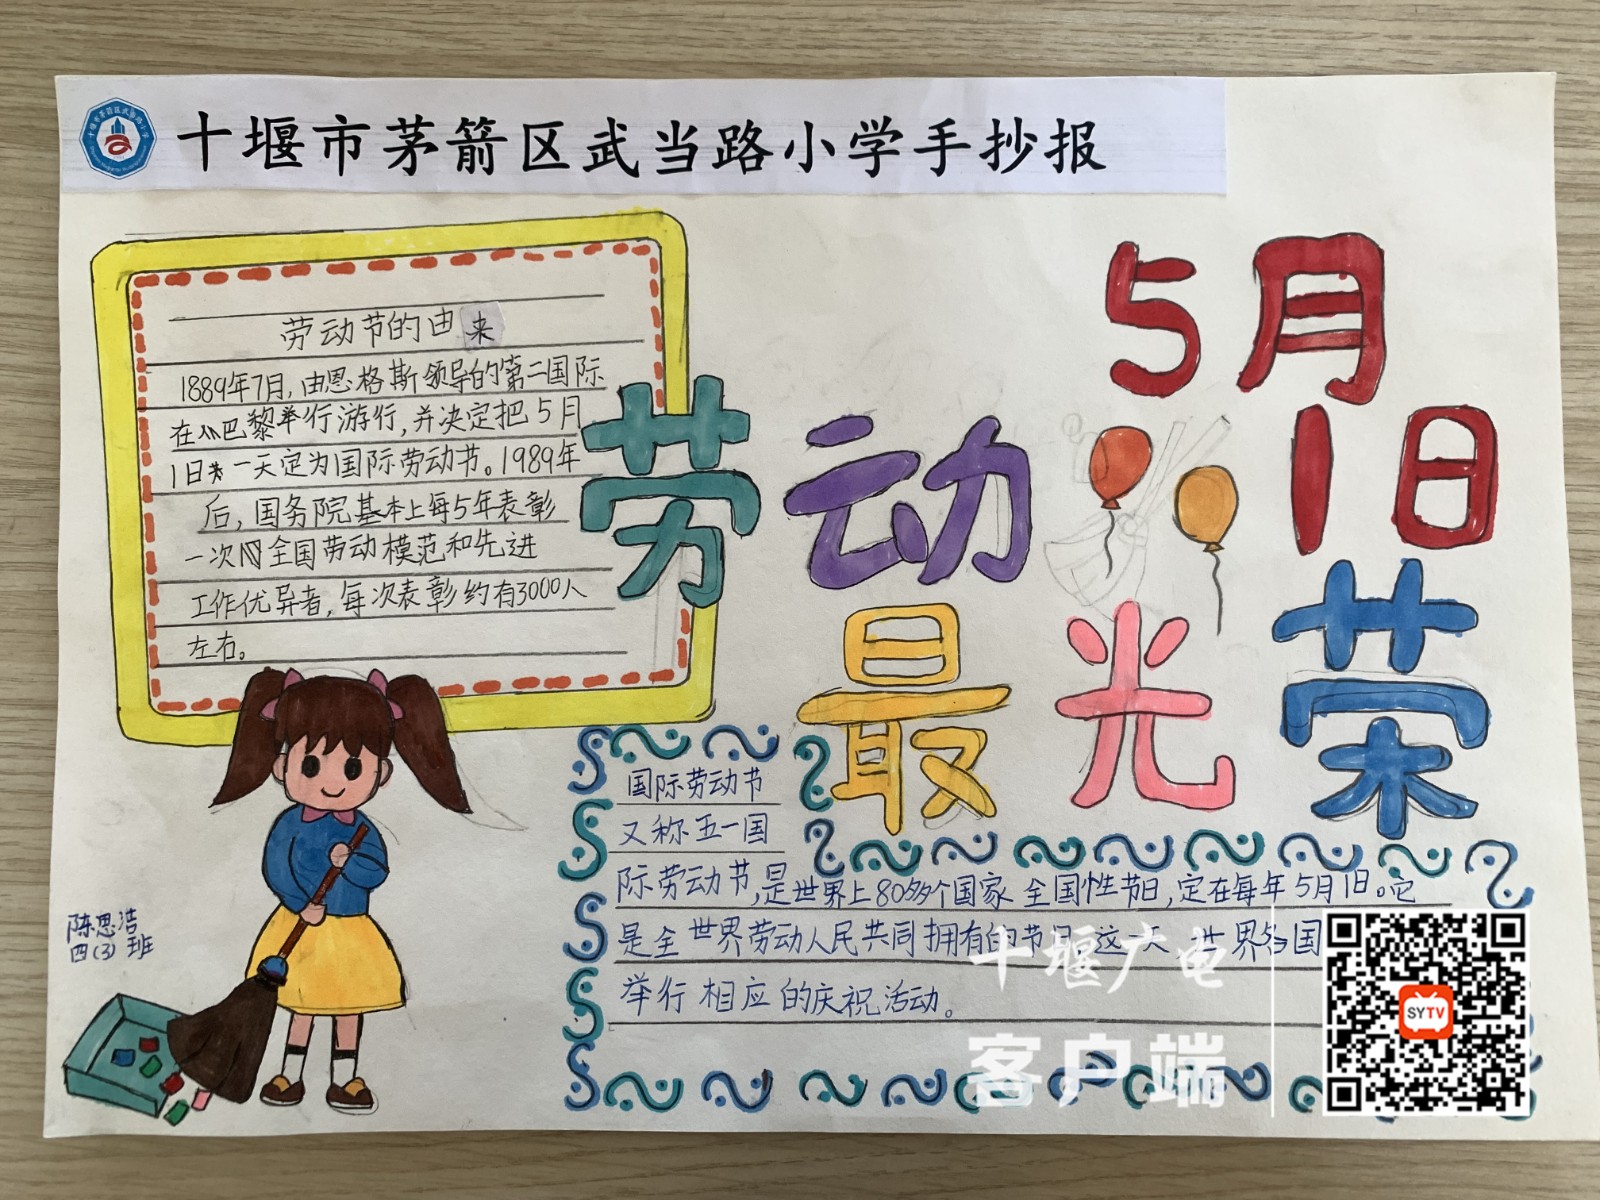 十堰市茅箭区武当路小学手抄报
5月
1日
劳动
最光荣
劳动节的由来
1889年7月,由恩格斯领导的第二国际
在巴黎举行游行,并决定把5月
1日 一天定为国际劳动节。1989年
后,国务院基本上每5年表彰
一次 全国劳动模范和先进
工作优异者,每次表彰约有3000人
左右。
国际劳动节
又称五一国
际劳动节,是世界上80多个国家 全国性节日,定在每年5月1日。它
是全世界劳动人民共同拥有的节日 这一天 世界各国
举行相应的庆祝活动。
陈思浩
四(3)班
十堰广电
客户端
SYTV